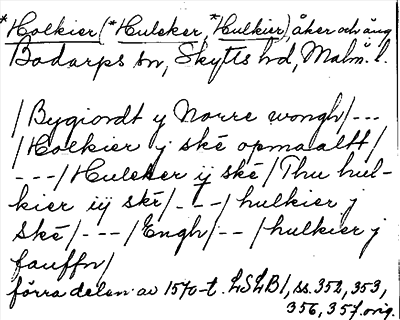 *Holkier (*Hulcker, *Hulkier), åker och äng
Bodarps sn, Skytts hd, Malm. l.
/Bygiordt y Norre wongh/---
/Holkier j ské opmaaltt/
---/Hulcker ij ské/Thu hul-
kier iij ské/---/hulkier j
ské/---/Engh/--/hulkier j
fauffn/
förra delen av 1570-t. LSLB1, ss. 352, 353,
356, 357. orig.